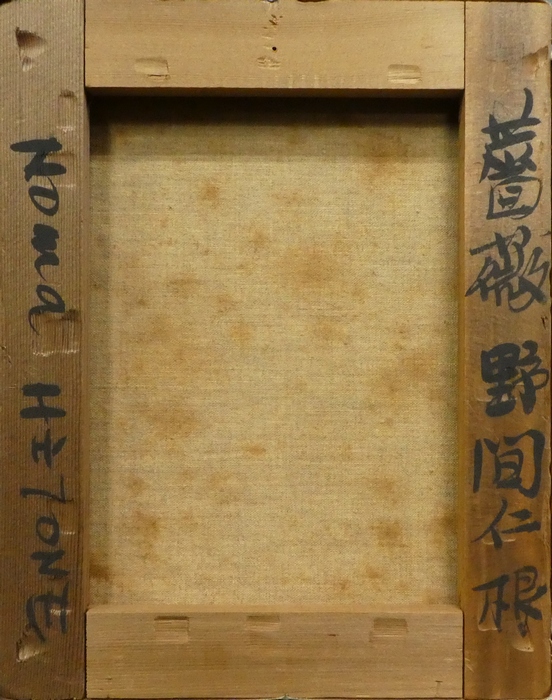 薔薇 野間仁根
Noma HITONE